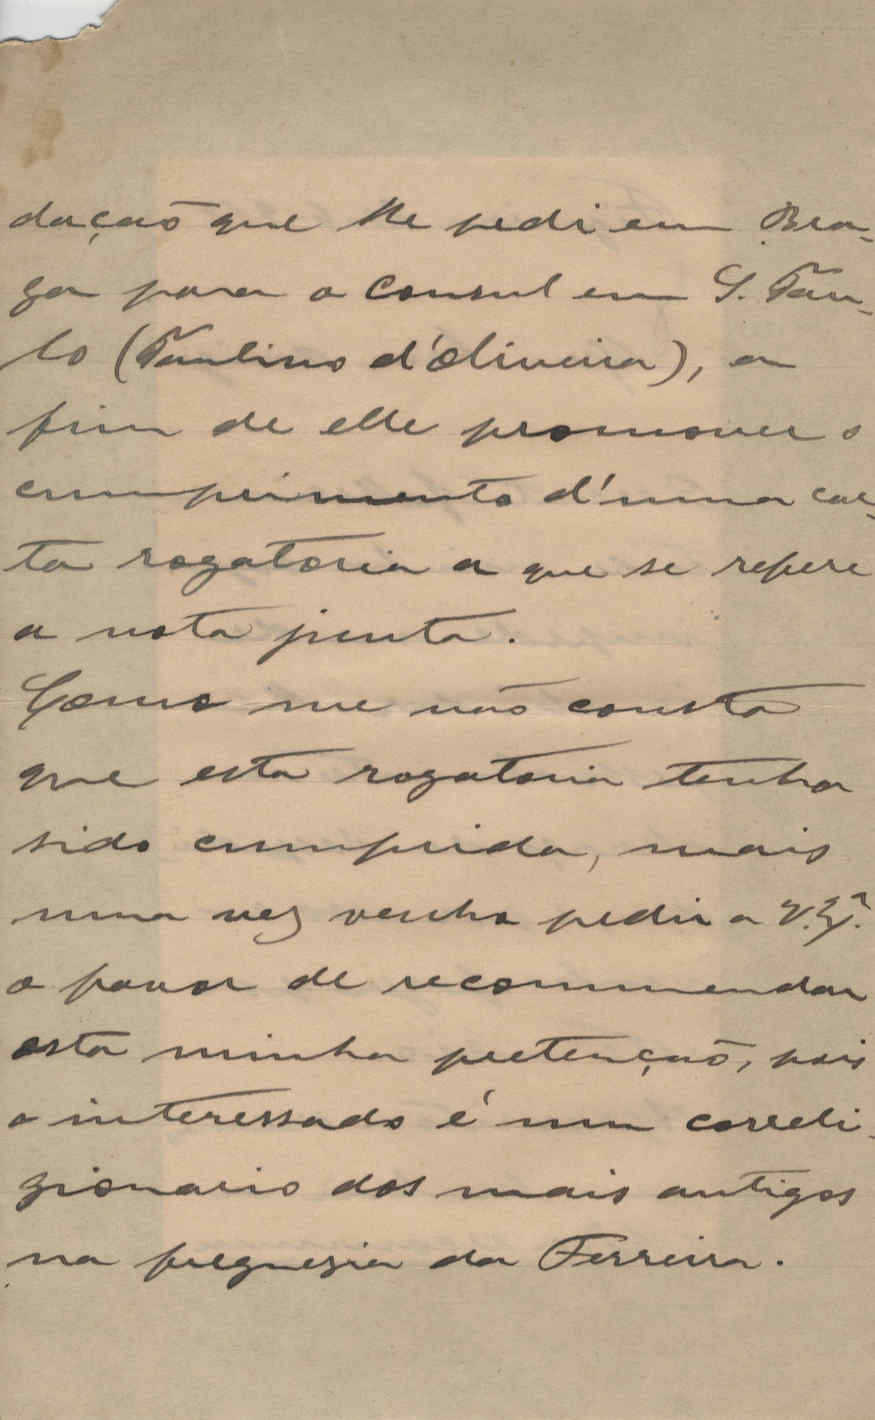 dação que lhe pedi em Bra-
ga para o consul em S. Pau-
lo (Paulino d'Oliveira), a
fim de elle promover o
cumprimento d'uma car-
ta rogatoria a que se refere
a nota junta.
Como me não consta
que esta rogatoria tenha
sido cumprida, mais
uma vez venho pedir a V. Ex.ª
o favor de recommendar
esta minha pretenção, pois
o interessado é um correli-
gionario dos mais antigos
na freguezia da Ferreira.